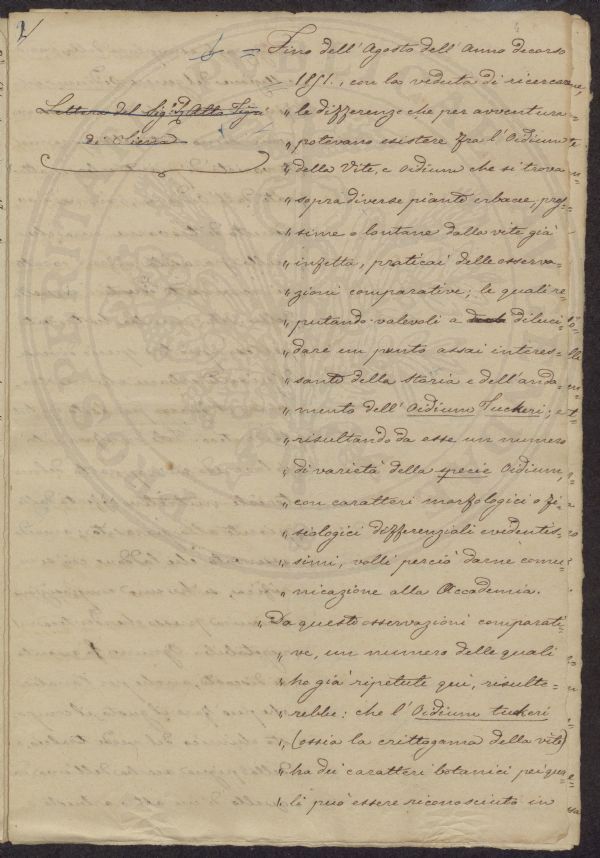 2
= Fino dell'Agosto dell'Anno decorso
1851., con la veduta di ricercare,
Lettera del Sig.
di Siena
" le differenze che per avventura
" potevano esistere fra l'Oidium
" della Vite, e Oidium che si trova
" sopra diverse piante erbacee, pros=
" sime o lontane dalla vite già
" infetta, praticai delle osserva=
" zioni comparative; le quali re=
" putando valevoli a diluci=
" dare un punto assai interes=
" sante della storia e dell'anda=
" mento dell'Oidium Tuckeri; e
" risultando da esse un numero
" di varietà della specie Oidium,
" con caratteri morfologici o fi=
" siologici differenziali evidentis=
" simi, volli perciò darne comu=
" nicazione alla Accademia.
" Da queste osservazioni comparati=
" ve, un numero delle quali
" ho già ripetute qui, risulte=
" rebbe: che l'Oidium tuckeri
" (ossia la crittogama della vite)
" ha dei caratteri botanici pei qua=
" li può essere riconosciuto in